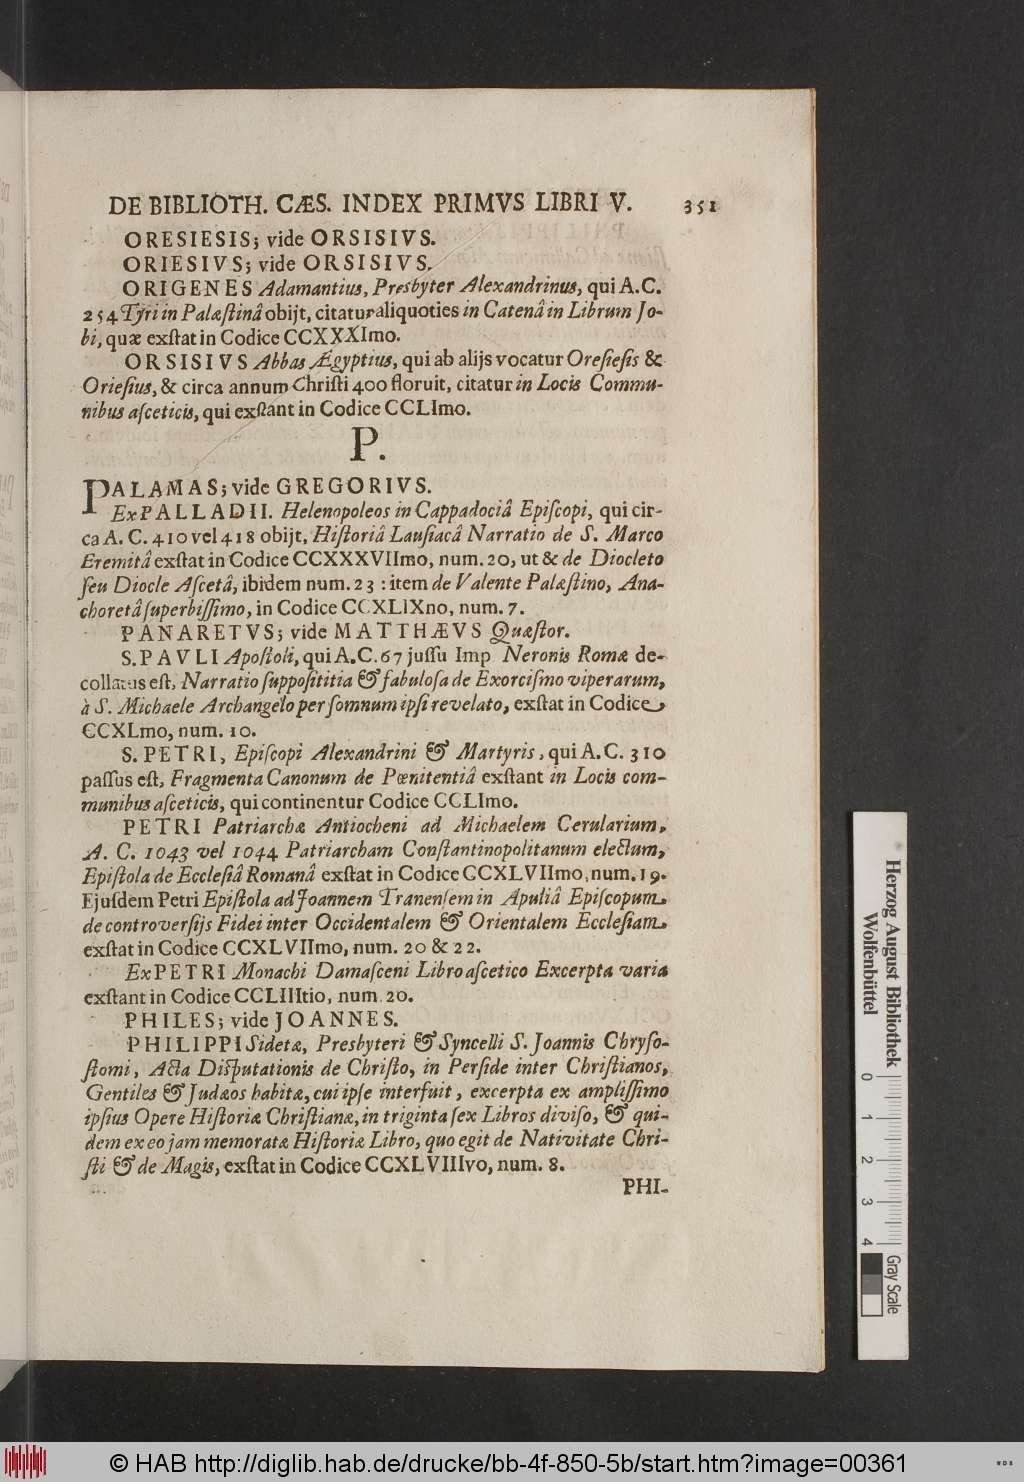 DE BIBLIOTH. CÆS. INDEX PRIMVS LIBRI V. 351
ORESIESIS; vide ORSISIVS.
ORIESIVS; vide ORSISIVS.
ORIGENES Adamantius, Presbyter Alexandrinus, qui A.C.
254 Tyri in Palæſtinâ obijt, citatur aliquoties in Catenâ in Librum Jo-
bi, quæ exſtat in Codice CCXXXImo.
ORSISIVS Abbas Ægyptius, qui ab alijs vocatur Oreſieſis &
Orieſius, & circa annum Chriſti 400 floruit, citatur in Locis Commu-
nibus aſceticis, qui exſtant in Codice CCLImo.
P.
PALAMAS; vide GREGORIVS.
Ex PALLADII. Helenopoleos in Cappadociâ Epiſcopi, qui cir-
ca A. C. 410 vel 418 obijt, Hiſtoriâ Lauſiacâ Narratio de S. Marco
Eremitâ exſtat in Codice CCXXXVIImo, num. 20, ut & de Diocleto
ſeu Diocle Aſcetâ, ibidem num. 23 : item de Valente Palæſtino, Ana-
choretâ ſuperbiſſimo, in Codice CCXLIXno, num. 7.
PANARETVS; vide MATTHÆVS Quæſtor.
S. PAVLI Apoſtoli, qui A.C. 67 juſſu Imp Neronis Romæ de-
collatus eſt, Narratio ſuppoſititia & fabuloſa de Exorciſmo viperarum,
à S. Michaele Archangelo per ſomnum ipſi revelato, exſtat in Codice
CCXLmo, num. 10.
S. PETRI, Epiſcopi Alexandrini & Martyris, qui A.C. 310
paſſus eſt, Fragmenta Canonum de Pœnitentiâ exſtant in Locis com-
munibus aſceticis, qui continentur Codice CCLImo.
PETRI Patriarchæ Antiocheni ad Michaelem Cerularium,
A. C. 1043 vel 1044 Patriarcham Conſtantinopolitanum electum,
Epiſtola de Eccleſiâ Romanâ exſtat in Codice CCXLVIImo, num. 19.
Ejuſdem Petri Epiſtola ad Joannem Tranenſem in Apuliâ Epiſcopum
de controverſijs Fidei inter Occidentalem & Orientalem Eccleſiam
exſtat in Codice CCXLVIImo, num. 20 & 22.
Ex PETRI Monachi Damaſceni Libro aſcetico Excerpta varia
exſtant in Codice CCLIIItio, num. 20.
PHILES; vide JOANNES.
PHILIPPI Sidetæ, Presbyteri & Syncelli S. Joannis Chryſo-
ſtomi, Acta Diſputationis de Chriſto, in Perſide inter Chriſtianos,
Gentiles & Judæos habitæ, cui ipſe interfuit, excerpta ex ampliſſimo
ipſius Opere Hiſtoriæ Chriſtianæ, in triginta ſex Libros diviſo, & qui-
dem ex eo jam memoratæ Hiſtoriæ Libro, quo egit de Nativitate Chri-
ſti & de Magis, exſtat in Codice CCXLVIIIvo, num. 8.
PHI-
Herzog August Bibliothek
Wolfenbüttel
0 1 2 3 4
Gray Scale
© HAB http://diglib.hab.de/drucke/bb-4f-850-5b/start.htm?image=00361
WDB